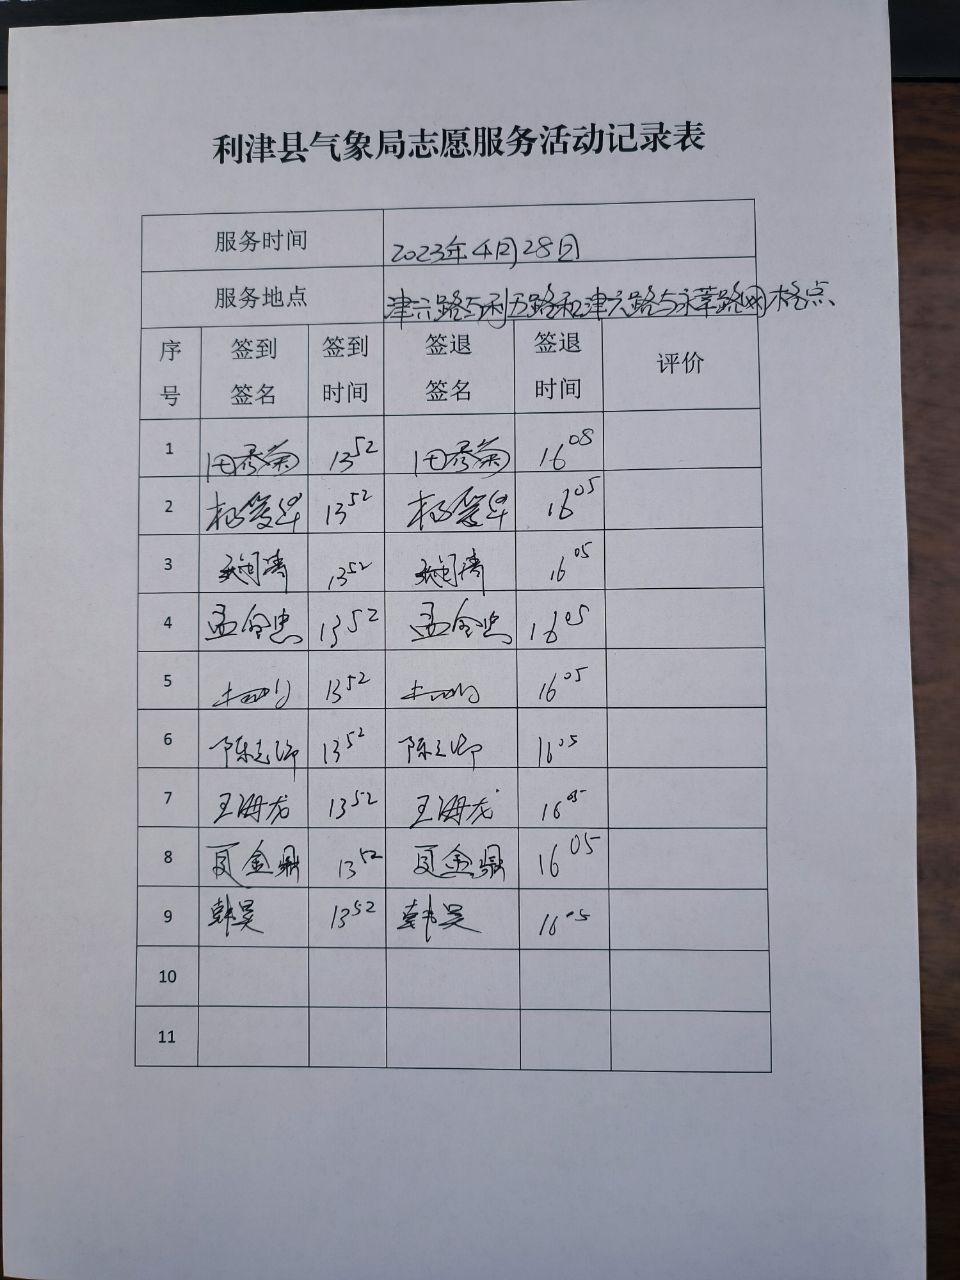 利津县气象局志愿服务活动记录表
服务时间 2023年4月28日
服务地点 津六路与利五路和津六路与永莘路网格点、
序号 签到签名 签到时间 签退签名 签退时间 评价
1 田秀菊 13 52 田秀菊 16 08
2 13 52 16 05
3 13 52 16 05
4 孟全忠 13 52 孟全忠 16 05
5 13 52 16 05
6 13 52 16 05
7 王海龙 13 52 王海龙 16 05
8 夏金鼎 13 52 夏金鼎 16 05
9 韩昊 13 52 韩昊 16 05
10
11